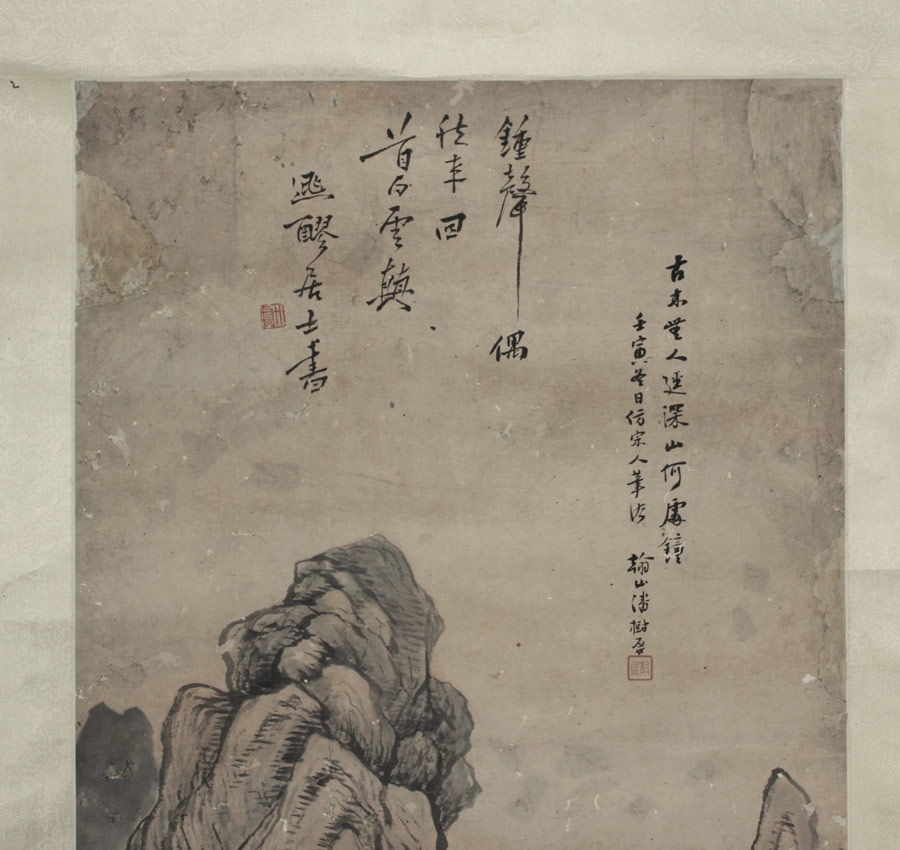 古木無人逕深山何處鐘
壬寅冬日仿宋人筆法 翰山潘樹
鍾聲偶
來回
首白雲巔
居士書